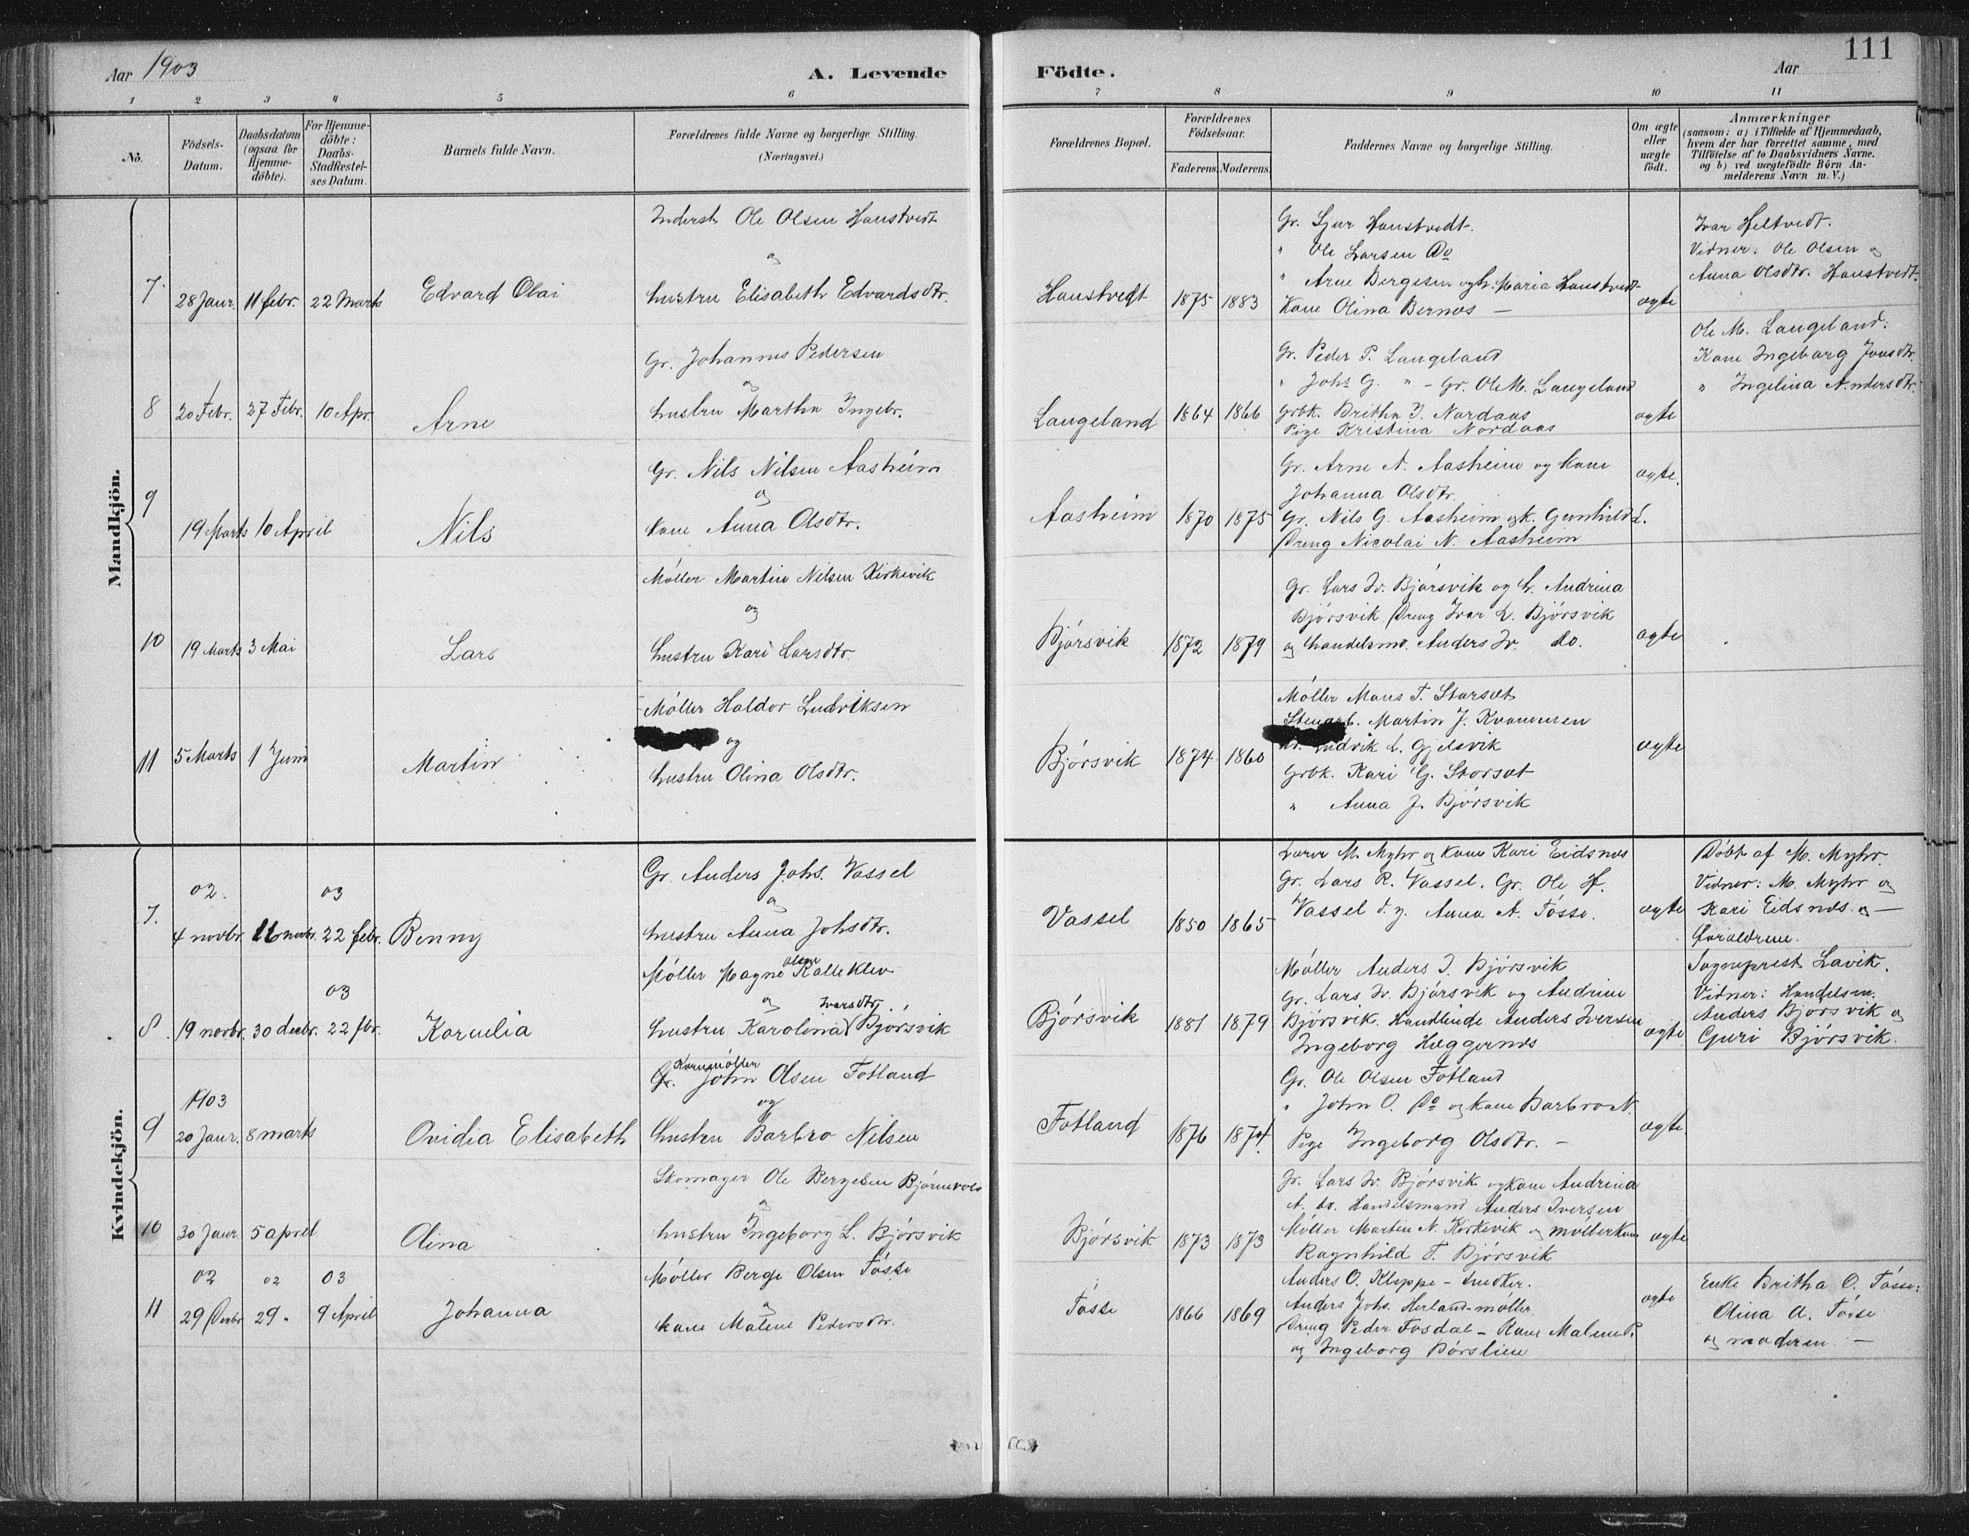 Aar 1903 A. Levende Födte. Aar 111
1 2 3 4 5 6 7 8 9 10 11
No.
Födsels-Datum.
Daabsdatum (ogsaa for Hjemmedöbte).
For Hjemmedöbte: Daabs-Stadfestelses Datum.
Barnets fulde Navn.
Forældrenes fulde Navne og borgerlige Stilling. (Næringsvei.)
Forældrenes Bopæl.
Forældrenes Födselsaar.
Faderens. Moderens.
Faddernes Navne og borgerlige Stilling.
Om ægte eller uægte födt.
Anmærkninger
(saasom: a) i Tilfælde af Hjemmedaab, hvem der har forrettet samme, med Tilföielse af to Daabsvidners Navne, og b) ved uægtefödte Börn Anmelderens Navn m. V.)
Mandkjön.
7. 28 Janr. 11 febr. 22 Marts
Edvard Olai
Inderst Ole Olsen Haustvedt
og
hustru Elisabeth Edvardsdtr.
Haustvedt 1875 1883
Gr. Sjur Haustvedt.
" Ole Larsen Do
" Arne Bergesen og h. Maria Haustvedt
Kone Olina Bernes —
ægte
Ivar Heltvedt.
Vidner: Ole Olsen og
Anna Olsdtr. Haustvedt.
8 20 Febr. 27 Febr. 10 Apr.
Arne
Gr. Johannes Pedersen
og
hustru Martha Ingebr.
Langeland 1864 1866
Gr. Peder P. Langeland
" Johs G. " - Gr. Ole M. Langeland
Grbk. Britha I. Nordaas
Pige Kristina Nordaas
ægte
Ole M. Langeland.
Kone Ingeborg Jonsdtr.
" Ingelina Andersdtr.
9 19 Marts 10 April
Nils
Gr. Nils Nilsen Aasheim
og
kone Anna Olsdtr.
Aasheim 1870 1875
Gr. Arne N. Aasheim og kone
Johanna Olsdtr.
Gr. Nils G. Aasheim og k. Gunhild L.
Dreng Nicolai N. Aasheim
ægte.
10 19 Marts 3 Mai
Lars
Möller Martin Nilsen Kirkevik
og
hustru Kari Larsdtr.
Bjórsvik 1872 1879
Gr. Lars Iv. Bjórsvik og h. Andrina
Bjórsvik Dreng Ivar L. Bjórsvik
og Handelsm. Anders Iv. do.
ægte
11 5 Marts 1 Juni
Martin
Móller Haldor Ludviksen
og
hustru Olina Olsdtr.
Bjórsvik 1874 1860
Móller Mons T. Storset
Stenarb. Martin J. Kvammen
Ludvik L. Gjelsvik
Grbk. Kari G. Storset
" Anna J. Bjórsvik
ægte
Kvindekjön.
7. 02 4 novbr. 11 novbr. 03 22 febr.
Benny
Gr. Anders Johs. Vassel
og
hustru Anna Johsdtr.
Vassel 1850 1865
Lærer M. Myhr og kone Kari Eidsnes
Gr. Lars R. Vassel. Gr. Ole H.
Vassel d. y. Anna A. Tósse.
ægte
Döbt af M. Myhr.
Vidner: M. Myhr og
Kari Eidsnes. og —
forældrene.
8. 19 novbr. 30 decbr. 03 22 fbr.
Kornelia
Móller Magne Olsen Kalleklev
og
hustru Karolina Ivarsdtr. Bjórsvik
Bjórsvik 1881 1879
Móller Anders I. Bjórsvik
Gr. Lars Iv. Bjórsvik og Andrine
Bjórsvik. Handlende Anders Iversen
Ingeborg Heggernes
ægte
Sogneprest Lavik.
Vidner: Handelsm.
Anders Bjórsvik og
Guri Bjórsvik.
9 1903 20 Janr. 8 marts
Ovidia Elisabeth
Gr. Kornmóller John Olsen Fotland
og
hustru Barbro Nilsen
Fotland 1876 1874
Gr. Ole Olsen Fotland
" John O. Do og kone Barbro N.
Pige Ingeborg Olsdtr. —
ægte.
10 30 Janr. 5 april
Olina
Skomager Ole Bergesen Bjørnevold
og
hustru Ingeborg L. Bjórsvik
Bjórsvik 1873 1873
Gr. Lars Iv. Bjórsvik og kone Andrina
A. Handelsmand Anders Iversen
Móller Martin N. Kirkevik og móllerkone
Ragnhild T. Bjórsvik
ægte
11 02 29 Decbr 02 29 " 03 9 April
Johanna
Móller Berge Olsen Tósse
og
kone Malene Pedersdtr.
Tósse 1866 1869
Anders O. Kleppe - snedker.
Anders Johs. Herland - móller
Dreng Peder Fosdal - Kone Malene P.
og Ingeborg Bórslien
ægte
Enke Britha O. Tósse.
Olina A. Tósse
og moderen. —